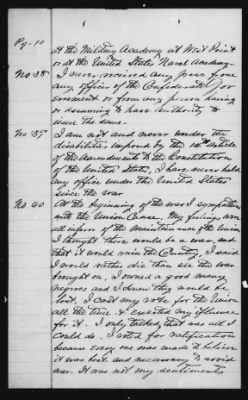 Pg-10
at the Military Academy at West Point
or at the United States Naval Academy.
No 38 I never received any pass from
any officer of the Confederate Gov
ernment or from any person having
or assuming to have authority to
issue the same.
No 39 I am not and never under the
disabilities imposed by the 14th Article
of the Amendments to the Constitution
of the United States, I have never held
any office under the United States
since the war
No 40 At the beginning of the war I sympathized
with the Union Cause, My feelings were
all in favor of the maintenance of the Union
I thought there would be a war, and
that it would ruin the Country, I said
I would rather die than see the war
brought on, I owned a good many
negroes and I knew they would be
lost. I cast my vote for the Union
all the time & exerted my influence
for it. I only talked, that was all I
could do. I voted for ratification
because every one was made to believe
it was best and necessary to avoid
war. It was not my sentiments